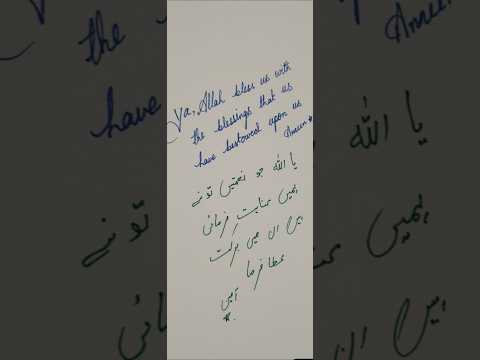 Ya, Allah bless us with
the blessings that us
have bestowed upon us
Ameen *
یا اللہ جو نعمتیں تو نے
ہمیں عنایت فرمائی
ہیں ان میں برکت
عطا فرما
آمین
*